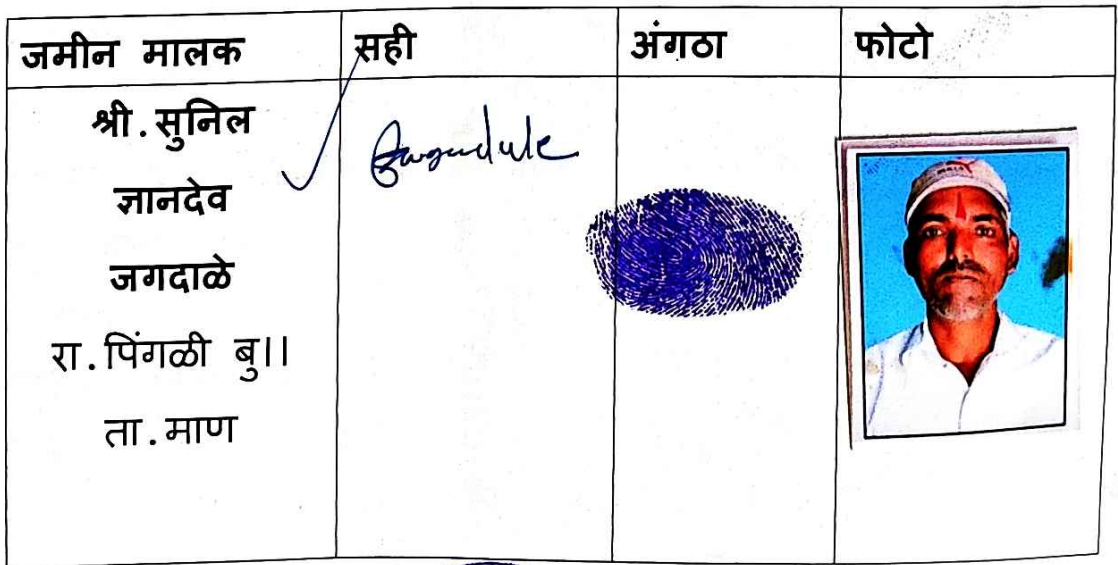 जमीन मालक सही अंगठा फोटो
श्री.सुनिल
ज्ञानदेव
जगदाळे
रा.पिंगळी बु।।
ता.माण